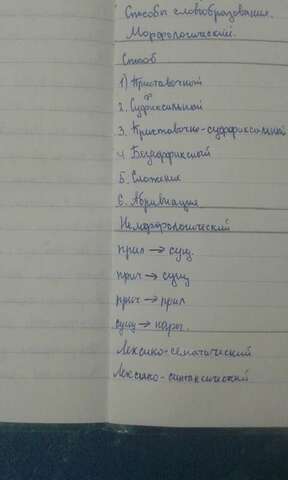 Способы словообразования.
Морфологический.
Способ
1) Приставочный
2. Суффиксальной
3. Приставочно-суффиксальной
4. Безаффиксной
5. Сложение
6. Абривиация
Неморфологический
прил → сущ.
прич → сущ
прич → прил
сущ → нареч.
Лексико-сематический
Лексико-синтаксический